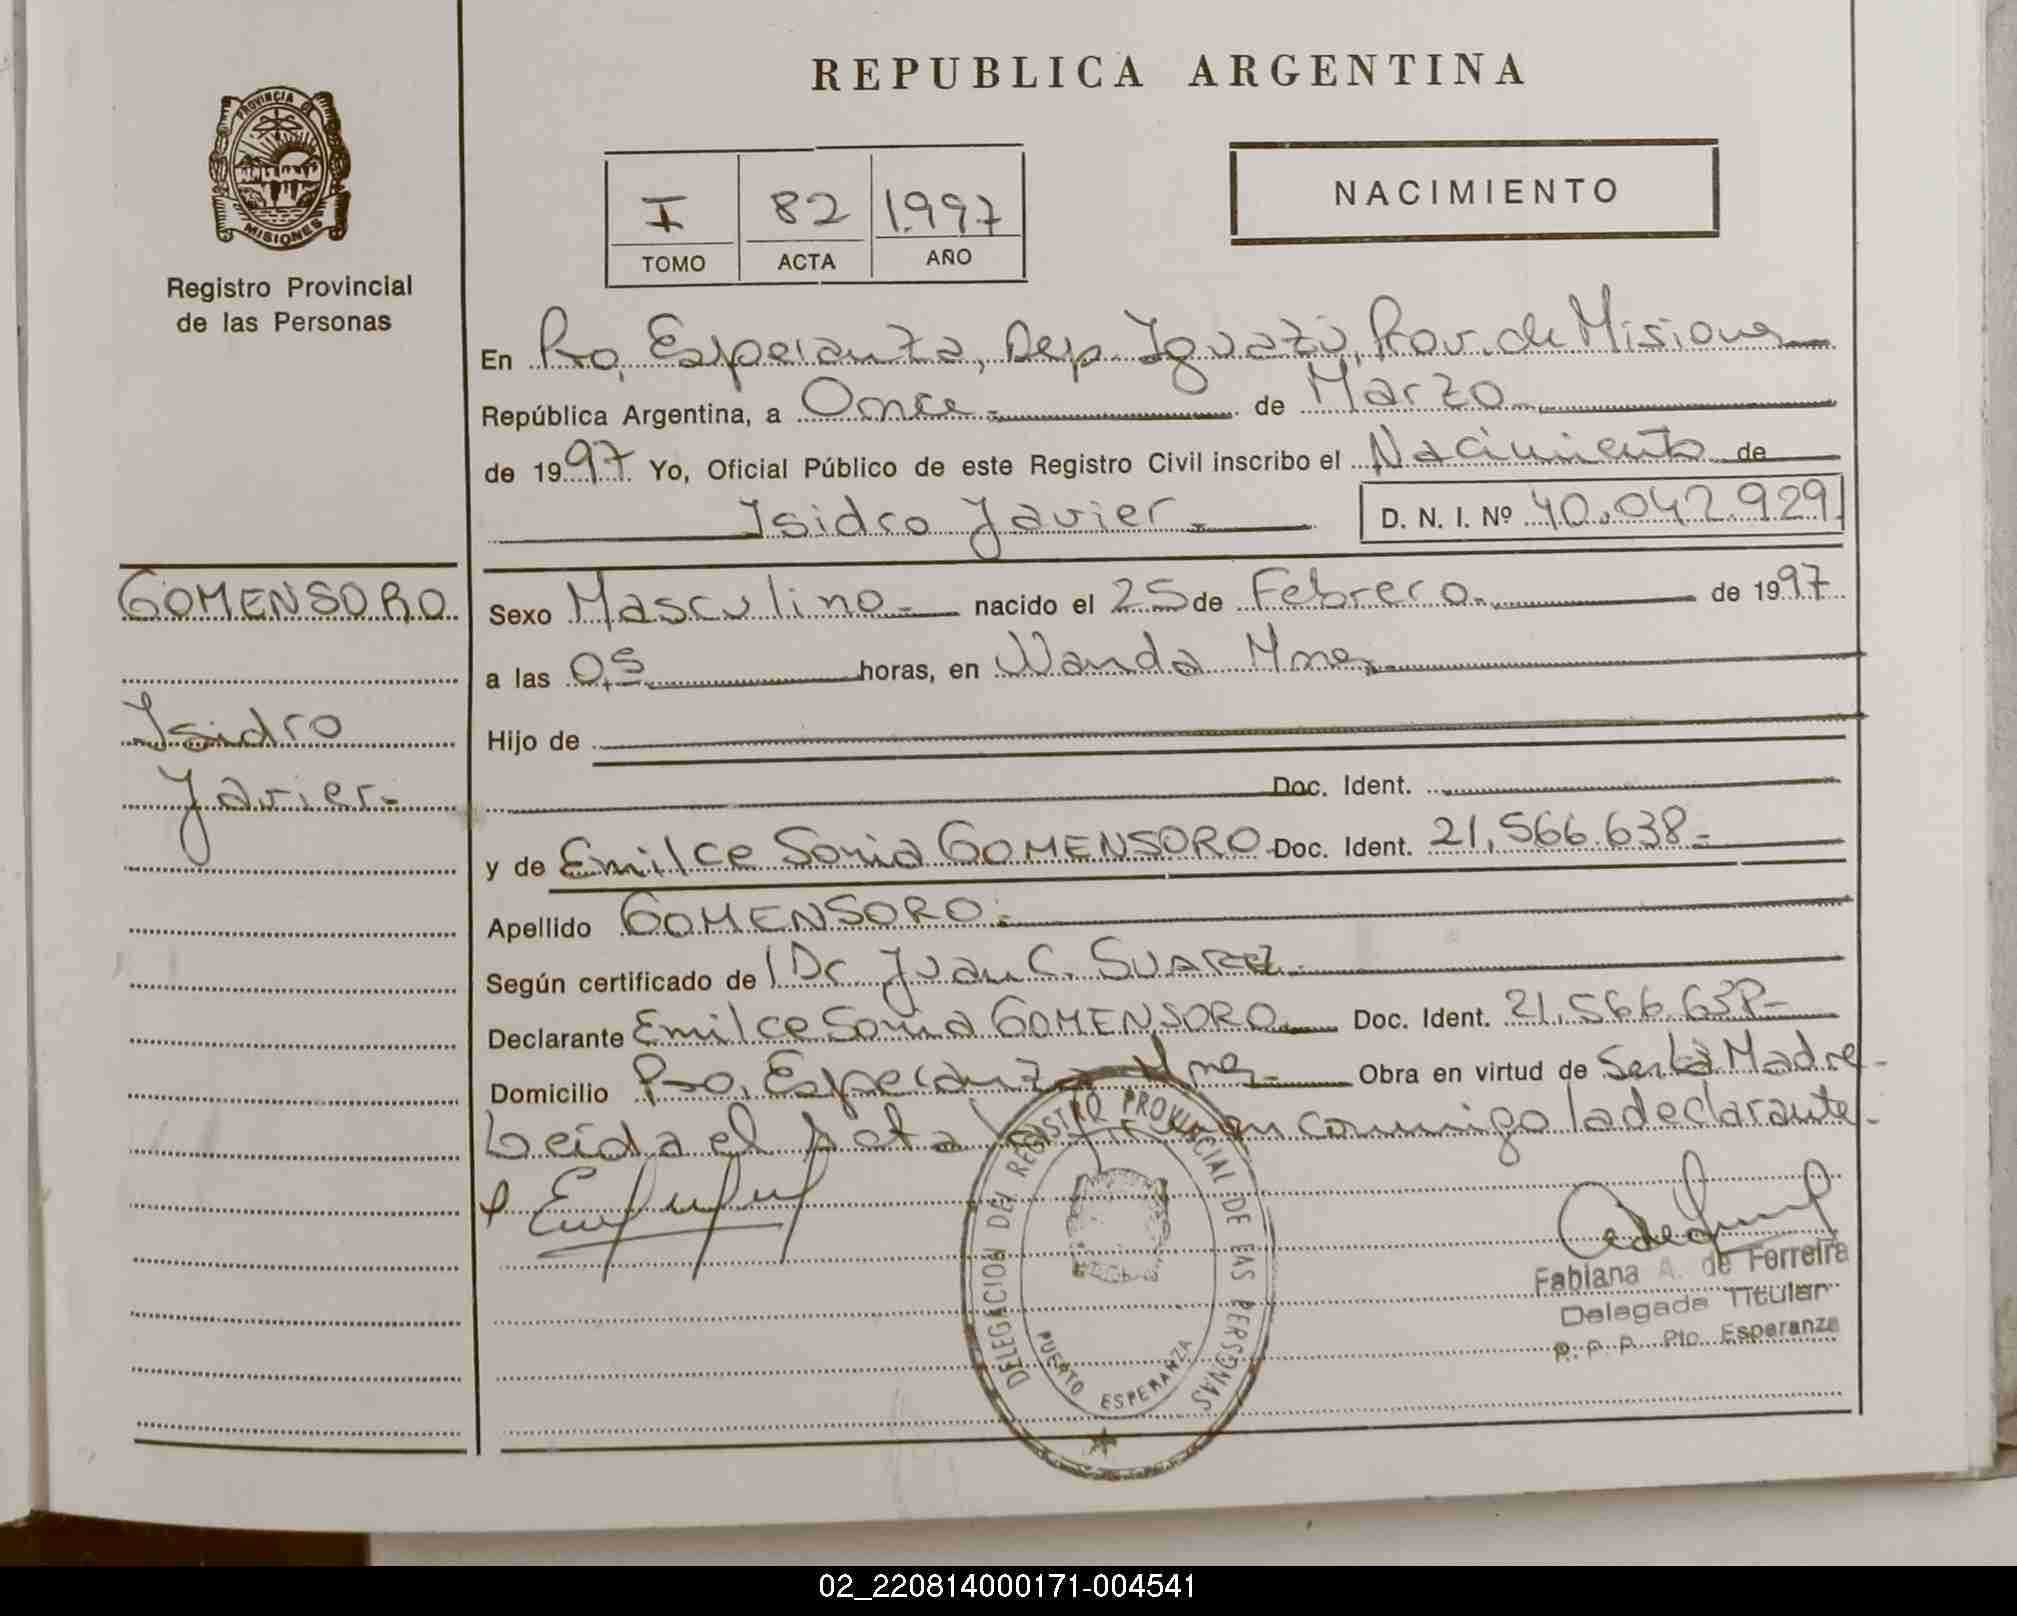 REPUBLICA ARGENTINA
PROVINCIA DE
MISIONES
Registro Provincial
de las Personas
I 82 1.997
TOMO ACTA AÑO
NACIMIENTO
En Pto. Esperanza, Dep. Iguazú, Prov. de Misiones
República Argentina, a Once de Marzo
de 1997 Yo, Oficial Público de este Registro Civil inscribo el Nacimiento de
Isidro Javier D. N. I. Nº 40.042.929
GOMENSORO
Isidro
Javier
Sexo Masculino nacido el 25 de Febrero de 1997
a las 05 horas, en Wanda Mnes
Hijo de
Doc. Ident.
y de Emilce Sonia GOMENSORO Doc. Ident. 21.566.638
Apellido GOMENSORO
Según certificado de Dr Juan C. SUAREZ
Declarante Emilce Sonia GOMENSORO Doc. Ident. 21.566.638
Domicilio Pto. Esperanza Mnes Obra en virtud de Ser la Madre
Leída el Acta conmigo la declarante
DELEGACION DEL REGISTRO PROVINCIAL DE LAS PERSONAS
PUERTO ESPERANZA
Fabiana A. de Ferreira
Delegada Titular
R. P. P. Pto. Esperanza
02_220814000171-004541